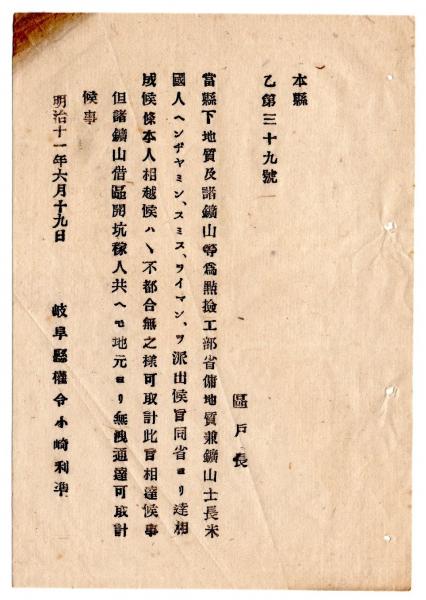 本縣
乙第三十九號
區戸長
當縣下地質及諸鑛山等爲點撿工部省傭地質兼鑛山士長米
國人ヘンヂヤミン、スミス、ワイマン、ヲ派出候旨同省ヨリ達相
成候條本人相越候ハヽ不都合無之樣可取計此旨相達候事
但諸鑛山借區開坑稼人共ヘモ地元ヨリ無洩通達可取計
候事
明治十一年六月十九日
岐阜縣權令小崎利準